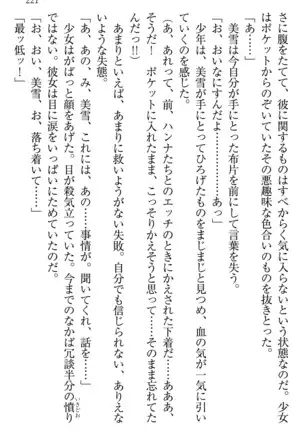 221
さに腹をたてて、彼に関するものはすべからく気に入らないのだろう。少女
はポケットからのぞいていたその悪趣味な色合いのものを抜きとった。
「あ……」
美雪は今自分が手にとった布片を前にして言葉を失う。
「お、おいなにすんだよ…………あっ」
少年は、美雪が手にとってひろげたものをまじまじと見つめ、血の気が一気に引い
ていくのを感じた。
（あ、あれって、前、ハンナたちとのエッチのときにかくされた下着だ……っ
そうだ！　ポケットに入れたまま、こっそりかえそうと思って……そのまま忘れてた
んだっ!!）
あまりといえば、あまりに救いようがない失敗。自分でも信じられない、ありえな
いような失態。
「あ、あの、み、美雪、これには、あの……事情が。聞いてくれ、話を……」
少女はがばっと顔をあげた。目が殺気立っていた。今までのなかば冗談半分の憤り
ではない。彼女は目に涙をいっぱいにためていたのだ。
「お、おい、美雪、お、落ち着いて……」
「最ッ低ッ！」